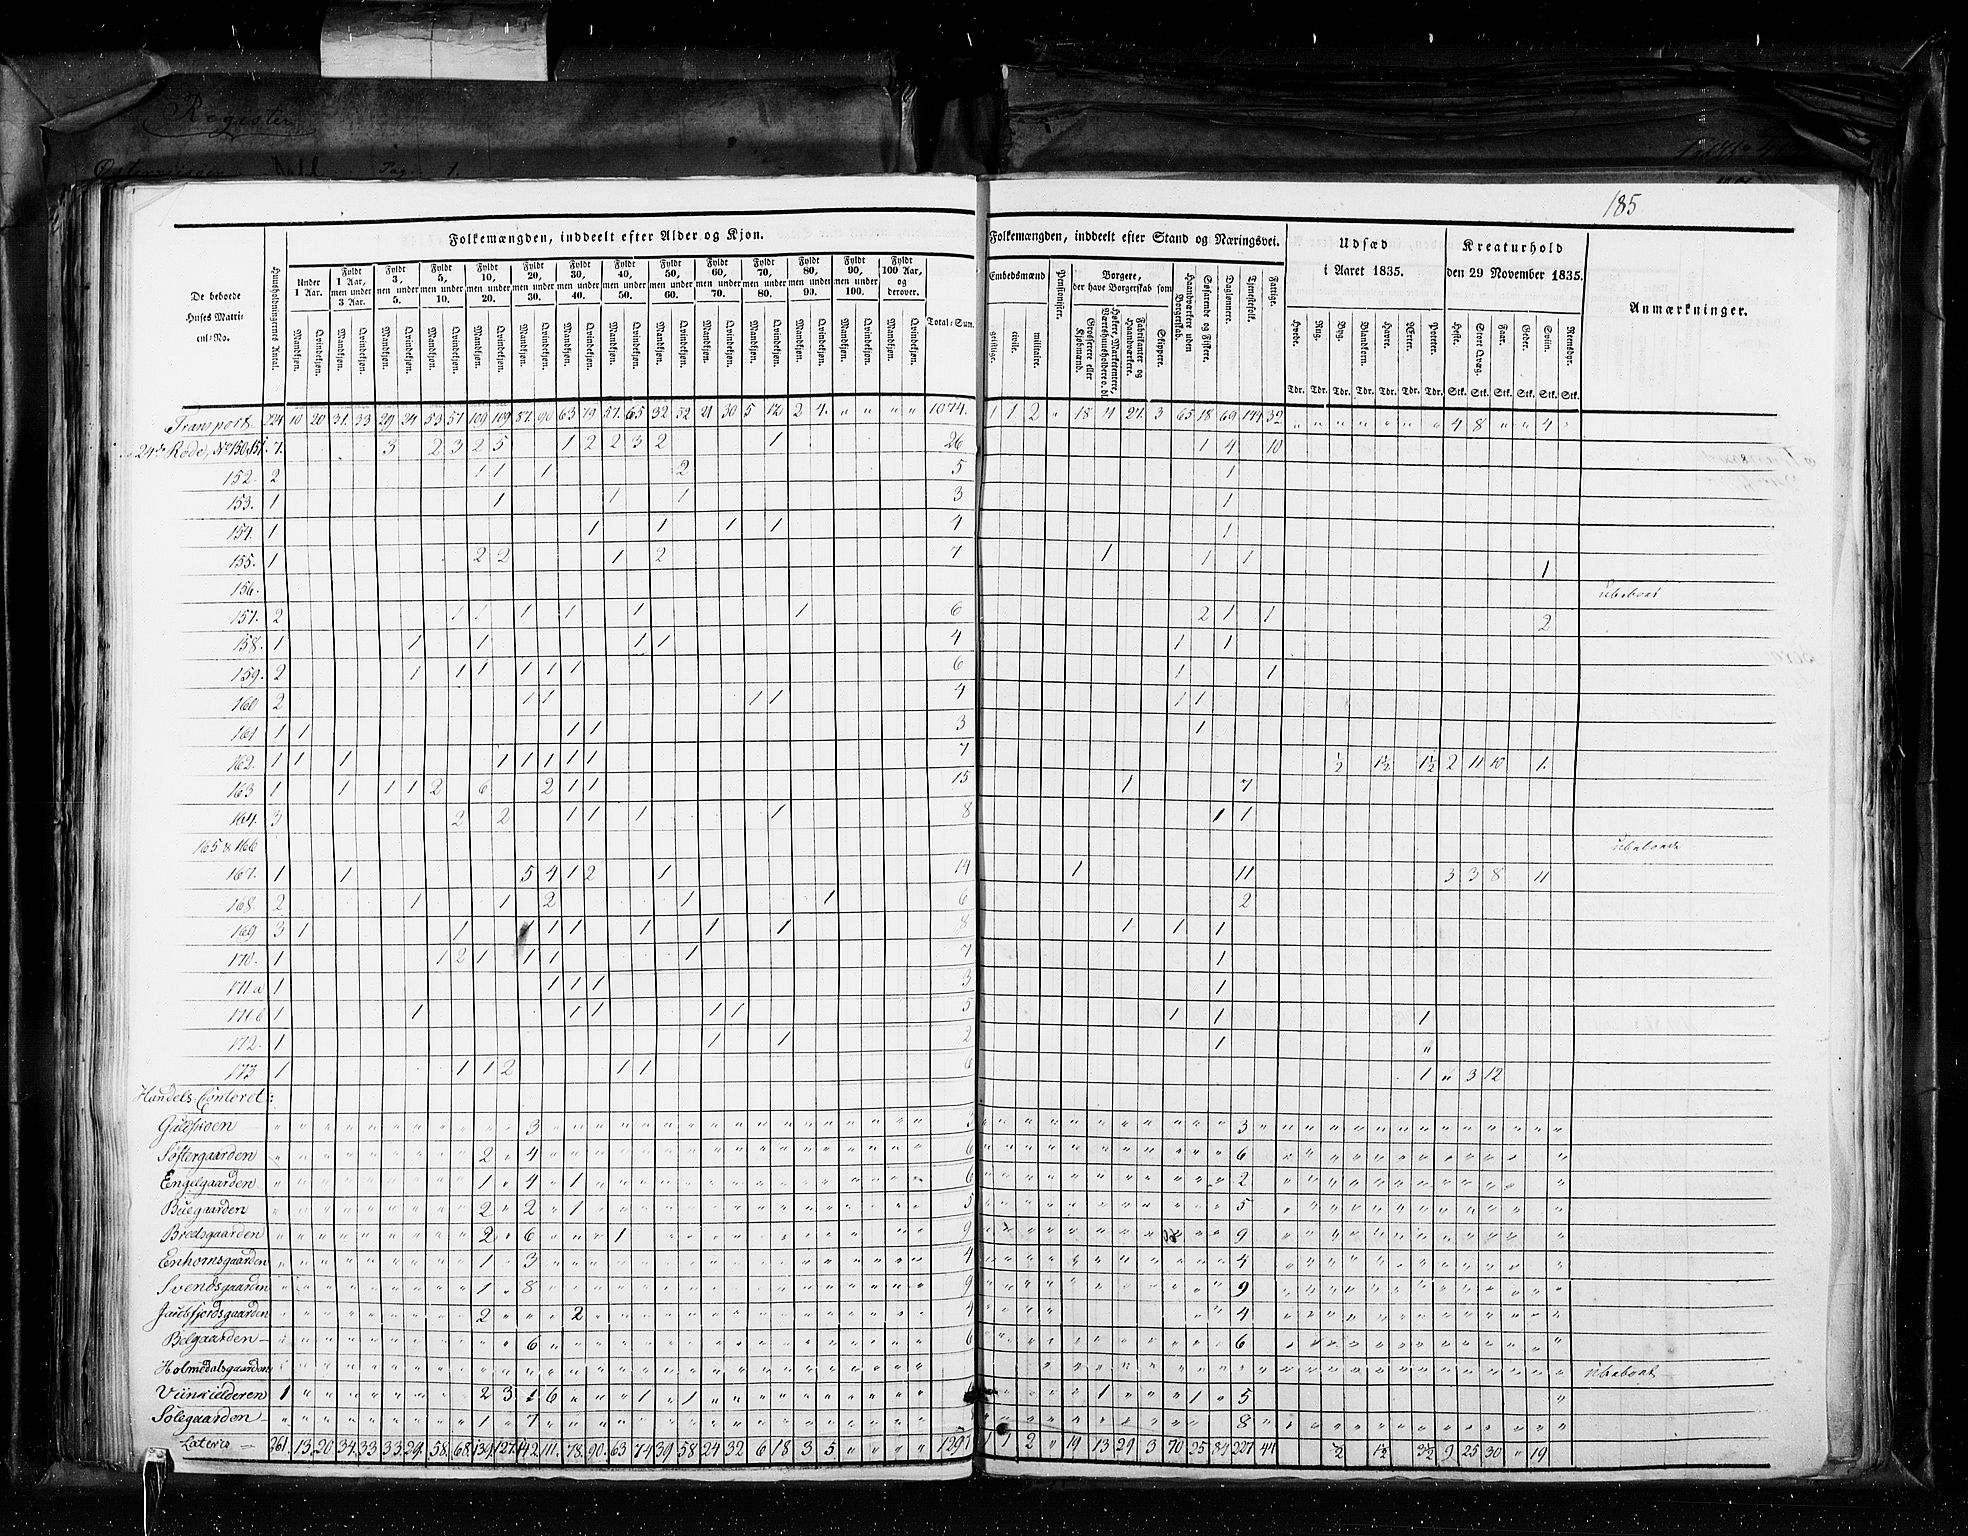 Register
Pag. 1.
185
Folkemængden, inddeelt efter Alder og Kjøn.
Folkemængden, inddeelt efter Stand og Næringsvei.
Udsæd i Aaret 1835.
Kreaturhold den 29 November 1835.
Anmærkninger.
De beboede Huses Matricul-No.
Huusholdningernes Antal.
Under 1 Aar.
Fyldt 1 Aar, men under 3 Aar.
Fyldt 3, men under 5.
Fyldt 5, men under 10.
Fyldt 10, men under 20.
Fyldt 20, men under 30.
Fyldt 30, men under 40.
Fyldt 40, men under 50.
Fyldt 50, men under 60.
Fyldt 60, men under 70.
Fyldt 70, men under 80.
Fyldt 80, men under 90.
Fyldt 90, men under 100.
Fyldt 100 Aar, og derover.
Mandkjøn. Qvindekjøn.
Total-Sum.
Embedsmænd
geistlige. civile. militaire.
Pensionister.
Borgere, der have Borgerskab som
Grosserere eller Kjøbmænd.
Høkere, Marketentere, Værtshuusholdere o. dl.
Fabrikanter og Haandværkere.
Skippere.
Haandværkere uden Borgerskab.
Søfarende og Fiskere.
Daglønnere.
Tjenestefolk.
Fattige.
Hvede. Rug. Byg. Blandkorn. Havre. Erter. Poteter.
Tdr. Tdr. Tdr. Tdr. Tdr. Tdr. Tdr.
Heste. Stort Qvæg. Faar. Geder. Sviin. Reensdyr.
Stk. Stk. Stk. Stk. Stk. Stk.
Transport 224 10 20 31 33 29 24 53 57 109 109 57 90 63 79 57 65 32 52 21 30 5 12 2 4 " " " " 1074 1 1 2 " 18 11 27 3 65 18 69 144 32 " " " " " " " 4 8 " " 4 "
24de Rode, No 150 & 151 7 3 2 3 2 5 1 2 2 3 2 1 26 1 4 10
152. 2 1 1 1 2 5 1
153. 1 1 1 1 3 1
154. 1 1 1 1 1 4 1
155. 1 2 2 1 2 7 1 1 1 1
156. Ubeboet
157. 2 1 1 1 1 1 1 6 2 1 1 2
158. 1 1 1 1 1 4 1 1
159. 2 1 1 1 1 1 1 6 1 1
160 2 1 1 1 1 4 1 1
161 1 1 1 1 3 1
162. 1 1 1 1 1 1 1 1 7 ½ 1½ 1½ 2 11 10 1.
163 1 1 1 1 2 6 2 1 1 15 1 7
164. 3 2 2 1 1 1 1 8 1 1
165 & 166 Ubeboede
167. 1 1 5 4 1 2 1 14 1 11 3 3 8 11
168. 2 1 1 2 1 1 6 2
169 3 1 1 1 1 1 1 1 1 8 1 1 1
170. 1 1 2 1 1 1 1 7 1
171 a 1 1 1 1 3 1
171 b 1 1 1 1 1 1 5 1 1 1
172. 1 1 1 2 1 "
173 1 1 1 2 1 1 6 1 " 3 12
Handels-Contoret:
Guldskoen 3 3 3
Søstergaarden 2 4 6 6
Engelgaarden 1 4 1 6 2
Buegaarden 2 2 1 5 5
Bredsgaarden 2 6 1 9 9
Enhornsgaarden 1 3 4 4
Svendsgaarden 1 8 9 9
Jacobsfjordsgaarden 2 2 4 4
Belgaarden 6 6 6
Holmedalsgaarden Ubeboet
Viinkielderen 1 2 3 1 6 1 1 1 1 5
Solegaarden 1 7 8
Lateris 261 13 20 34 33 33 29 58 68 139 127 142 111 78 90 63 74 39 58 24 32 6 18 3 5 " " " " 1 1 2 " 19 13 29 3 70 25 84 227 44 ½ 1½ 3½ 9 25 30 " 19